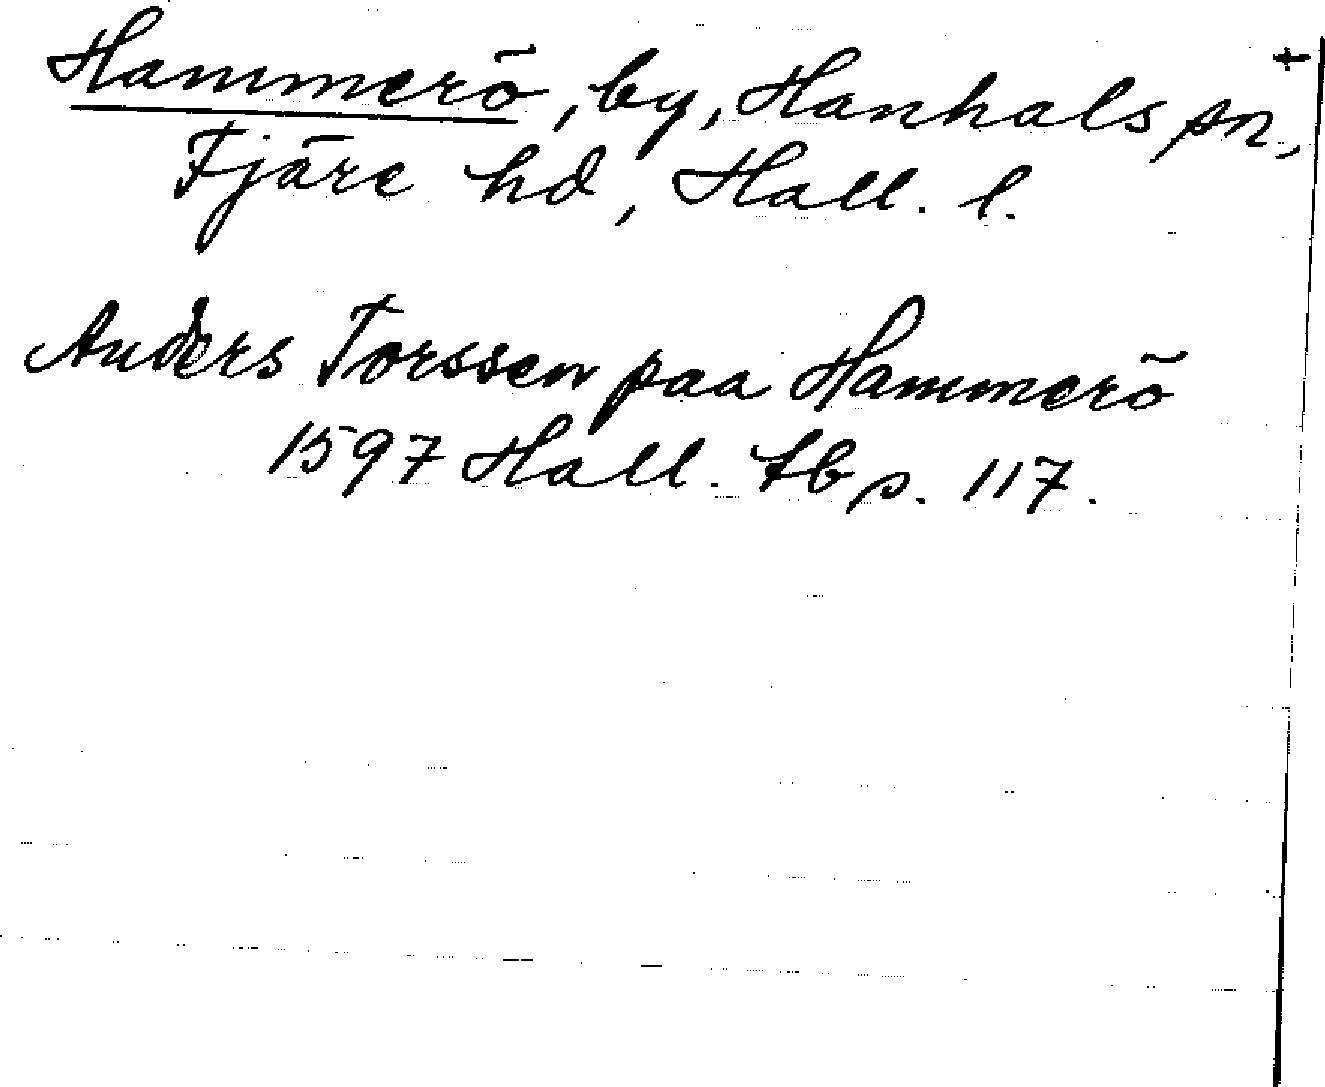 Hammerö, by, Hanhals sn,
Fjäre hd, Hall. l.
Anders Torssen paa Hammerö
1597 Hall. tb p. 117.